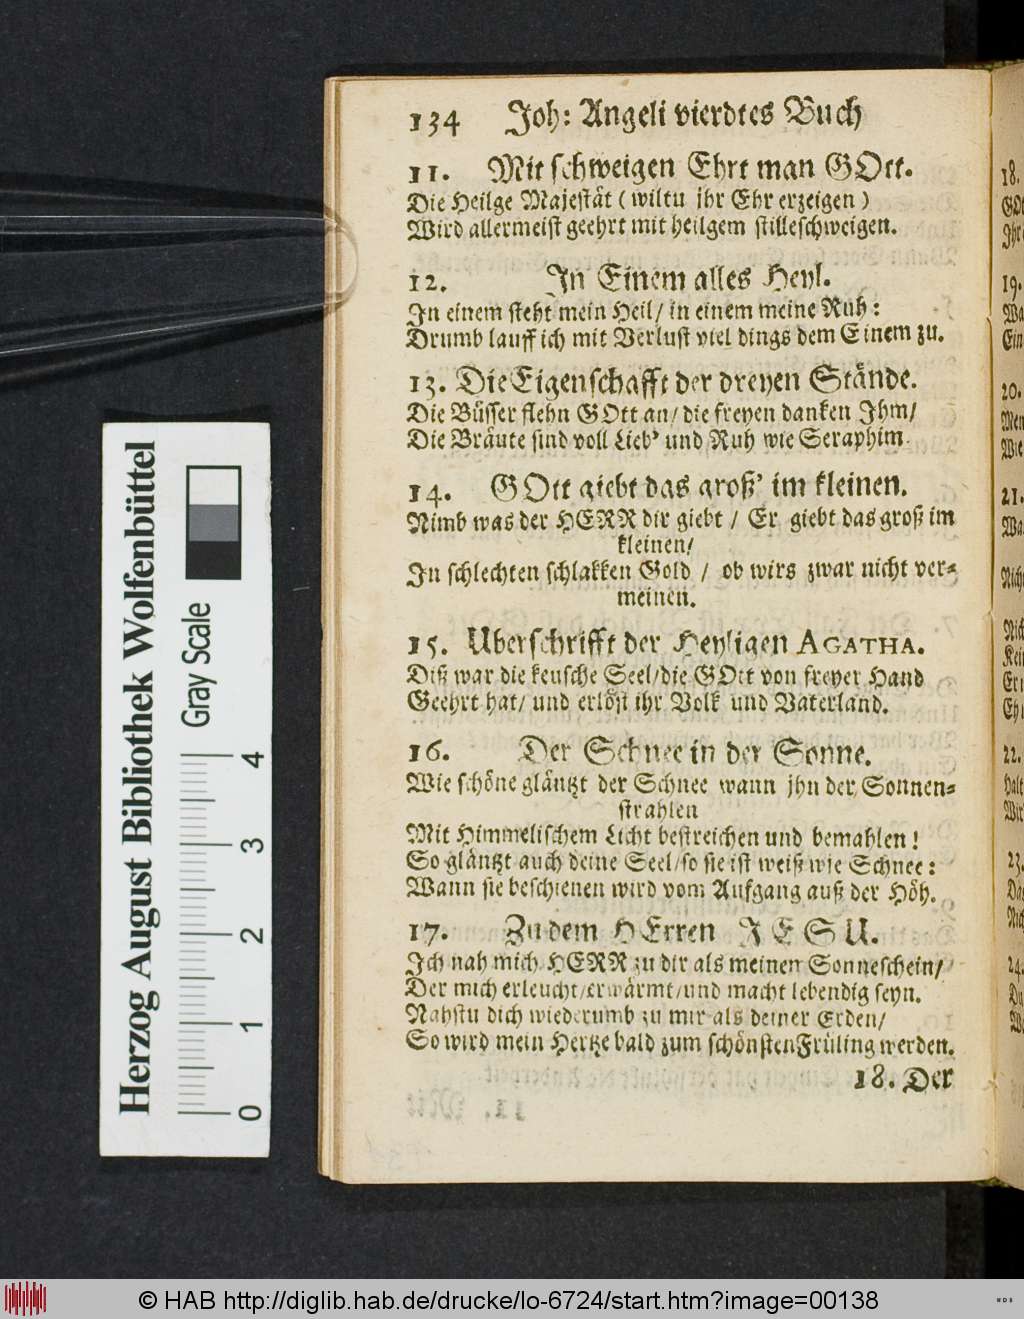 134 Joh: Angeli vierdtes Buch
11. Mit schweigen Ehrt man GOtt.
Die Heilge Majestät ( wiltu jhr Ehr erzeigen )
Wird allermeist geehrt mit heilgem stilleschweigen.
12. In Einem alles Heyl.
In einem steht mein Heil/ in einem meine Ruh:
Drumb lauff ich mit Verlust viel dings dem Einem zu.
13. Die Eigenschafft der dreyen Stände.
Die Büsser flehn GOtt an/ die freyen danken Ihm/
Die Bräute sind voll Lieb' und Ruh wie Seraphim.
14. GOtt giebt das groß' im kleinen.
Nimb was der HERR dir giebt / Er giebt das groß im
kleinen/
In schlechten schlakken Gold / ob wirs zwar nicht ver=
meinen.
15. Uberschrifft der Heyligen AGATHA.
Diß war die keusche Seel/die GOtt von freyer Hand
Geehrt hat/ und erlöst ihr Volk und Vaterland.
16. Der Schnee in der Sonne.
Wie schöne gläntzt der Schnee wann jhn der Sonnen=
strahlen
Mit Himmelischem Licht bestreichen und bemahlen!
So gläntzt auch deine Seel/so sie ist weiß wie Schnee:
Wann sie beschienen wird vom Aufgang auß der Höh.
17. Zu dem HErren JESU.
Ich nah mich HERR zu dir als meinen Sonneschein/
Der mich erleucht/erwärmt/und macht lebendig seyn.
Nahstu dich wiederumb zu mir als deiner Erden/
So wird mein Hertze bald zum schönsten Früling werden.
18. Der
18.
19.
20.
21.
22.
23.
24.
Herzog August Bibliothek Wolfenbüttel
Gray Scale
0 1 2 3 4
© HAB http://diglib.hab.de/drucke/lo-6724/start.htm?image=00138